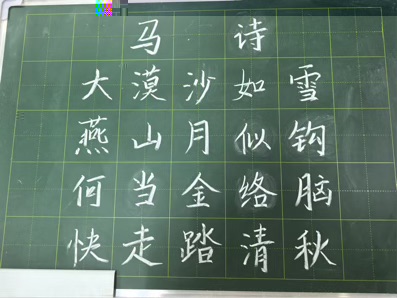 马诗
大漠沙如雪
燕山月似钩
何当金络脑
快走踏清秋